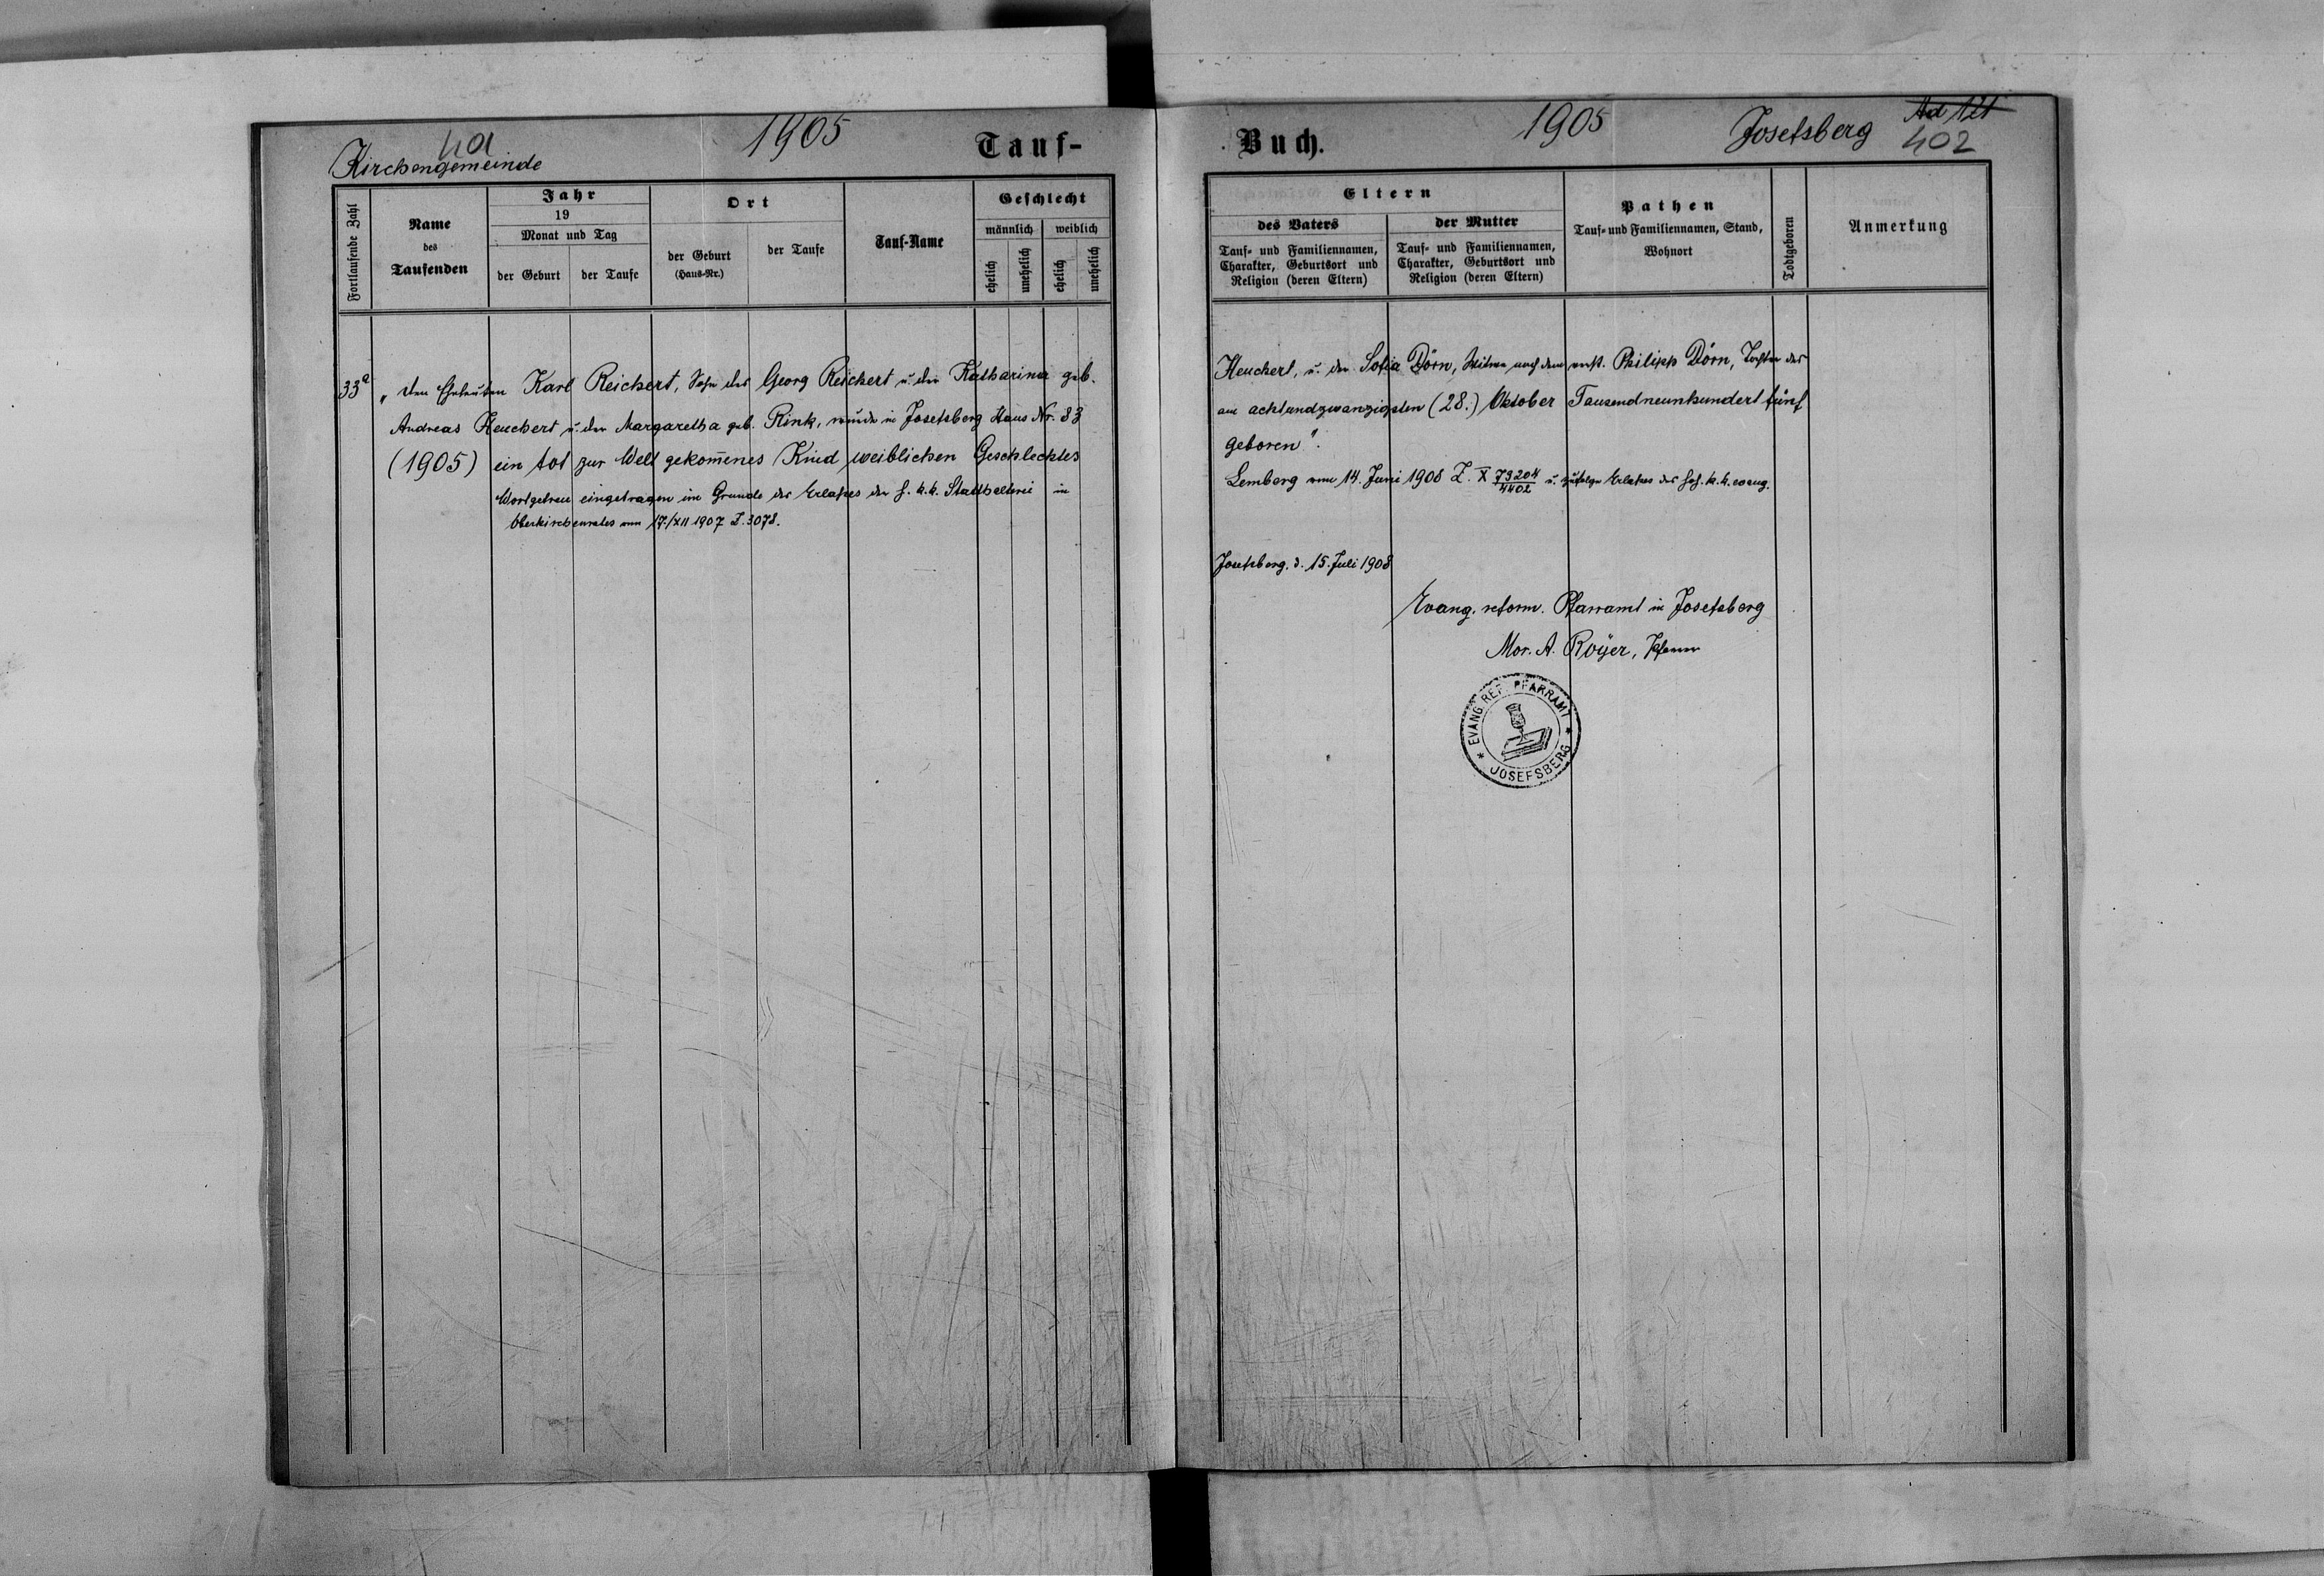 401
Kirchengemeinde
1905
Tauf-
Fortlaufende Zahl
Name
des
Taufenden
Jahr
19
Monat und Tag
der Geburt
der Taufe
Ort
der Geburt
(Haus-Nr.)
der Taufe
Tauf-Name
Geschlecht
männlich
weiblich
ehelich
unehelich
ehelich
unehelich
33a
„Den Eheleuten Karl Reichert, Sohn des Georg Reichert u. der Katharina geb.
Andreas Heuchert u. der Margaretha geb. Rink, wurde in Josefsberg Haus Nr. 83
(1905) ein tot zur Welt gekom̄enes Kind weiblichen Geschlechtes
Wortgetreu eingetragen im Grunde des Erlaßes der h. k. k. Statthalterei in
Oberkirchenrates vom 17./XII 1907 Z. 3078.
Buch.
1905
Josefsberg
402
Eltern
des Vaters
Tauf- und Familiennamen,
Charakter, Geburtsort und
Religion (deren Eltern)
der Mutter
Tauf- und Familiennamen,
Charakter, Geburtsort und
Religion (deren Eltern)
Pathen
Tauf- und Familiennamen, Stand,
Wohnort
Todtgeboren
Anmerkung
Heuchert, u. der Sofia Dörn, Witwe nach dem verst. Philipp Dörn, Tochter des
am achtundzwanzigsten (28.) Oktober Tausendneunhundert fünf
geboren".
Lemberg vom 14. Juni 1908 Z. X 73204/4402 u. zufolge Erlaßes des hoh. k. k. evang.
Josefsberg, d. 15. Juli 1908
Evang. reform. Pfarramt in Josefsberg
Mor. A. Royer, Pfarrer
* EVANG. REF. PFARRAMT *
JOSEFSBERG